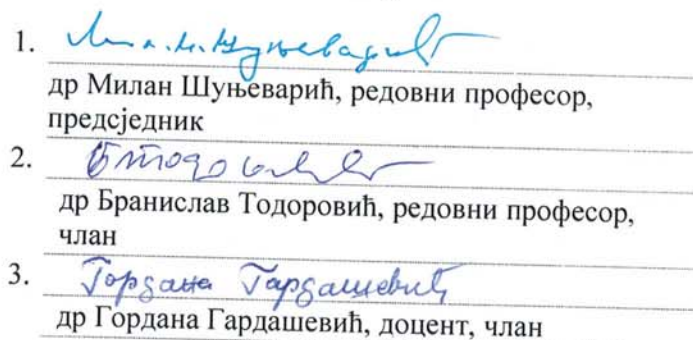 1.
др Милан Шуњеварић, редовни професор,
предсједник
2.
др Бранислав Тодоровић, редовни професор,
члан
3. Гордана Гардашевић
др Гордана Гардашевић, доцент, члан